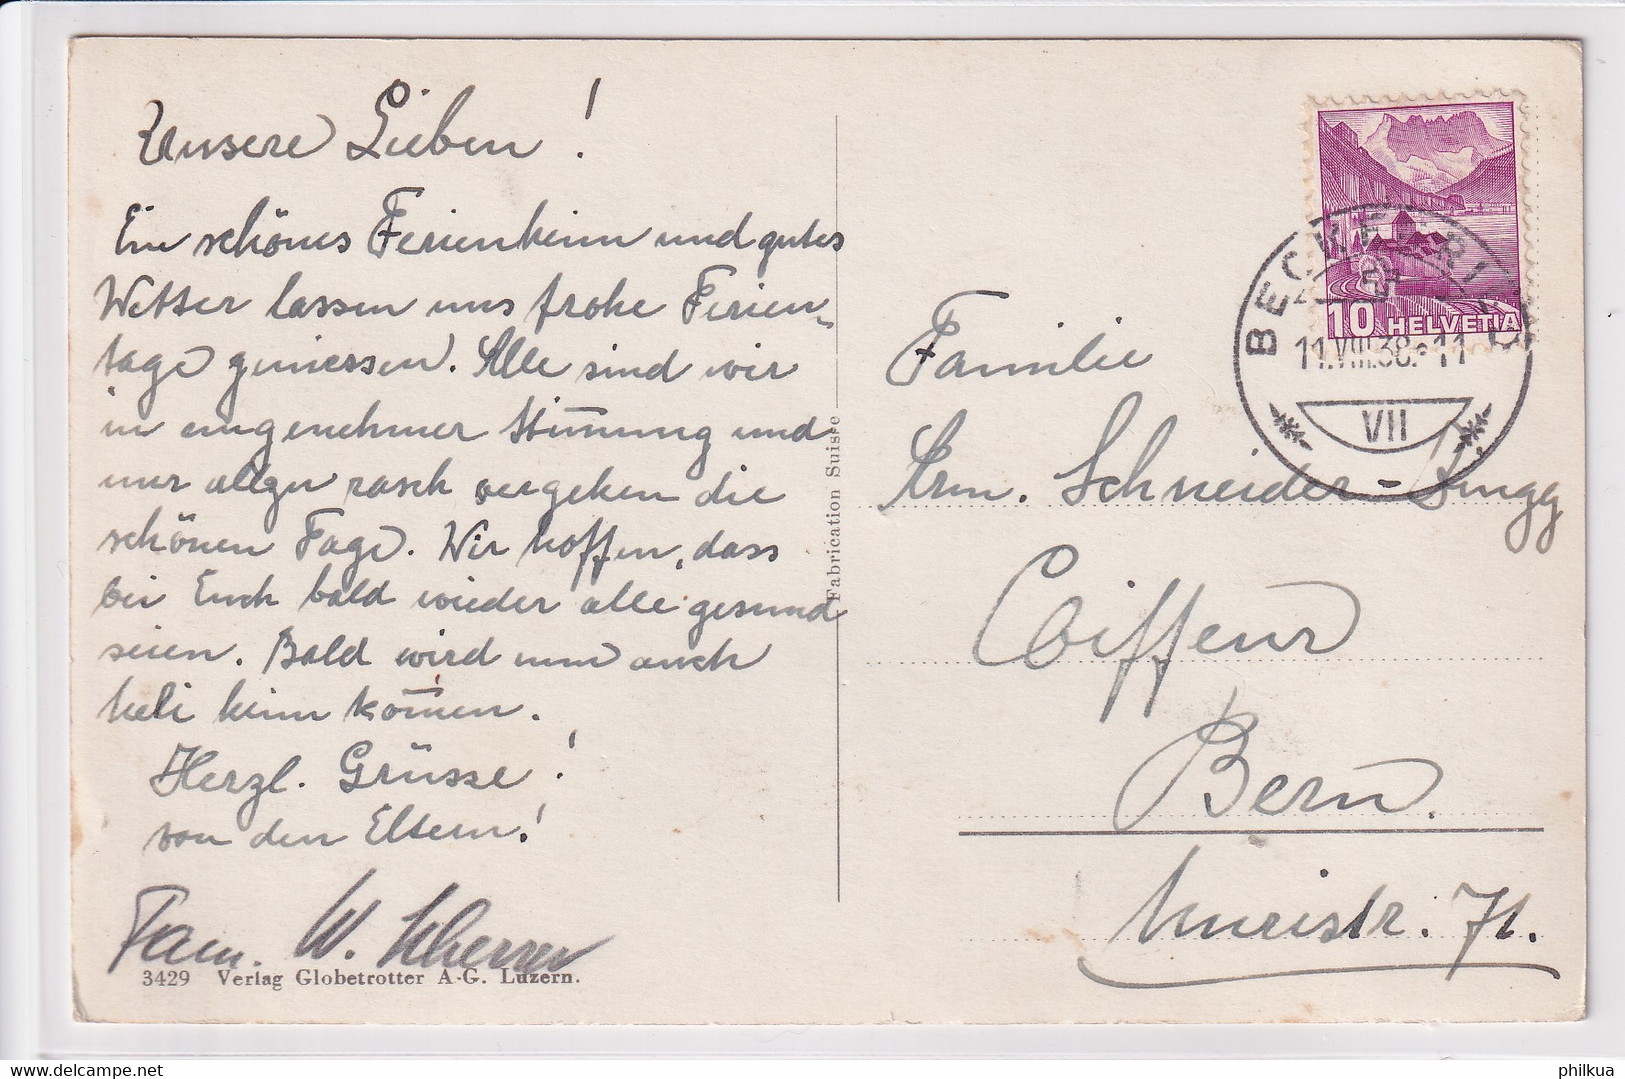 Unsere Lieben!
Ein schönes Ferienheim und gutes
Wetter lassen uns frohe Ferien-
tage geniessen. Alle sind wir
in angenehmer Stimmung und
nur allzu rasch vergehen die
schönen Tage. Wir hoffen, dass
bei Euch bald wieder alle gesund
seien. Bald wird nun auch
heim kommen.
Herzl. Grüsse!
von den Eltern!
Fam. W. Scherrer
3429 Verlag Globetrotter A-G. Luzern.
Fabrication Suisse
10 HELVETIA
BECKENRIED
11.VIII.38.-11
VII
Familie
Arm. Schneider-Singg
Coiffeur
Bern.
Muristr. 71.
philkua
delcampe.net